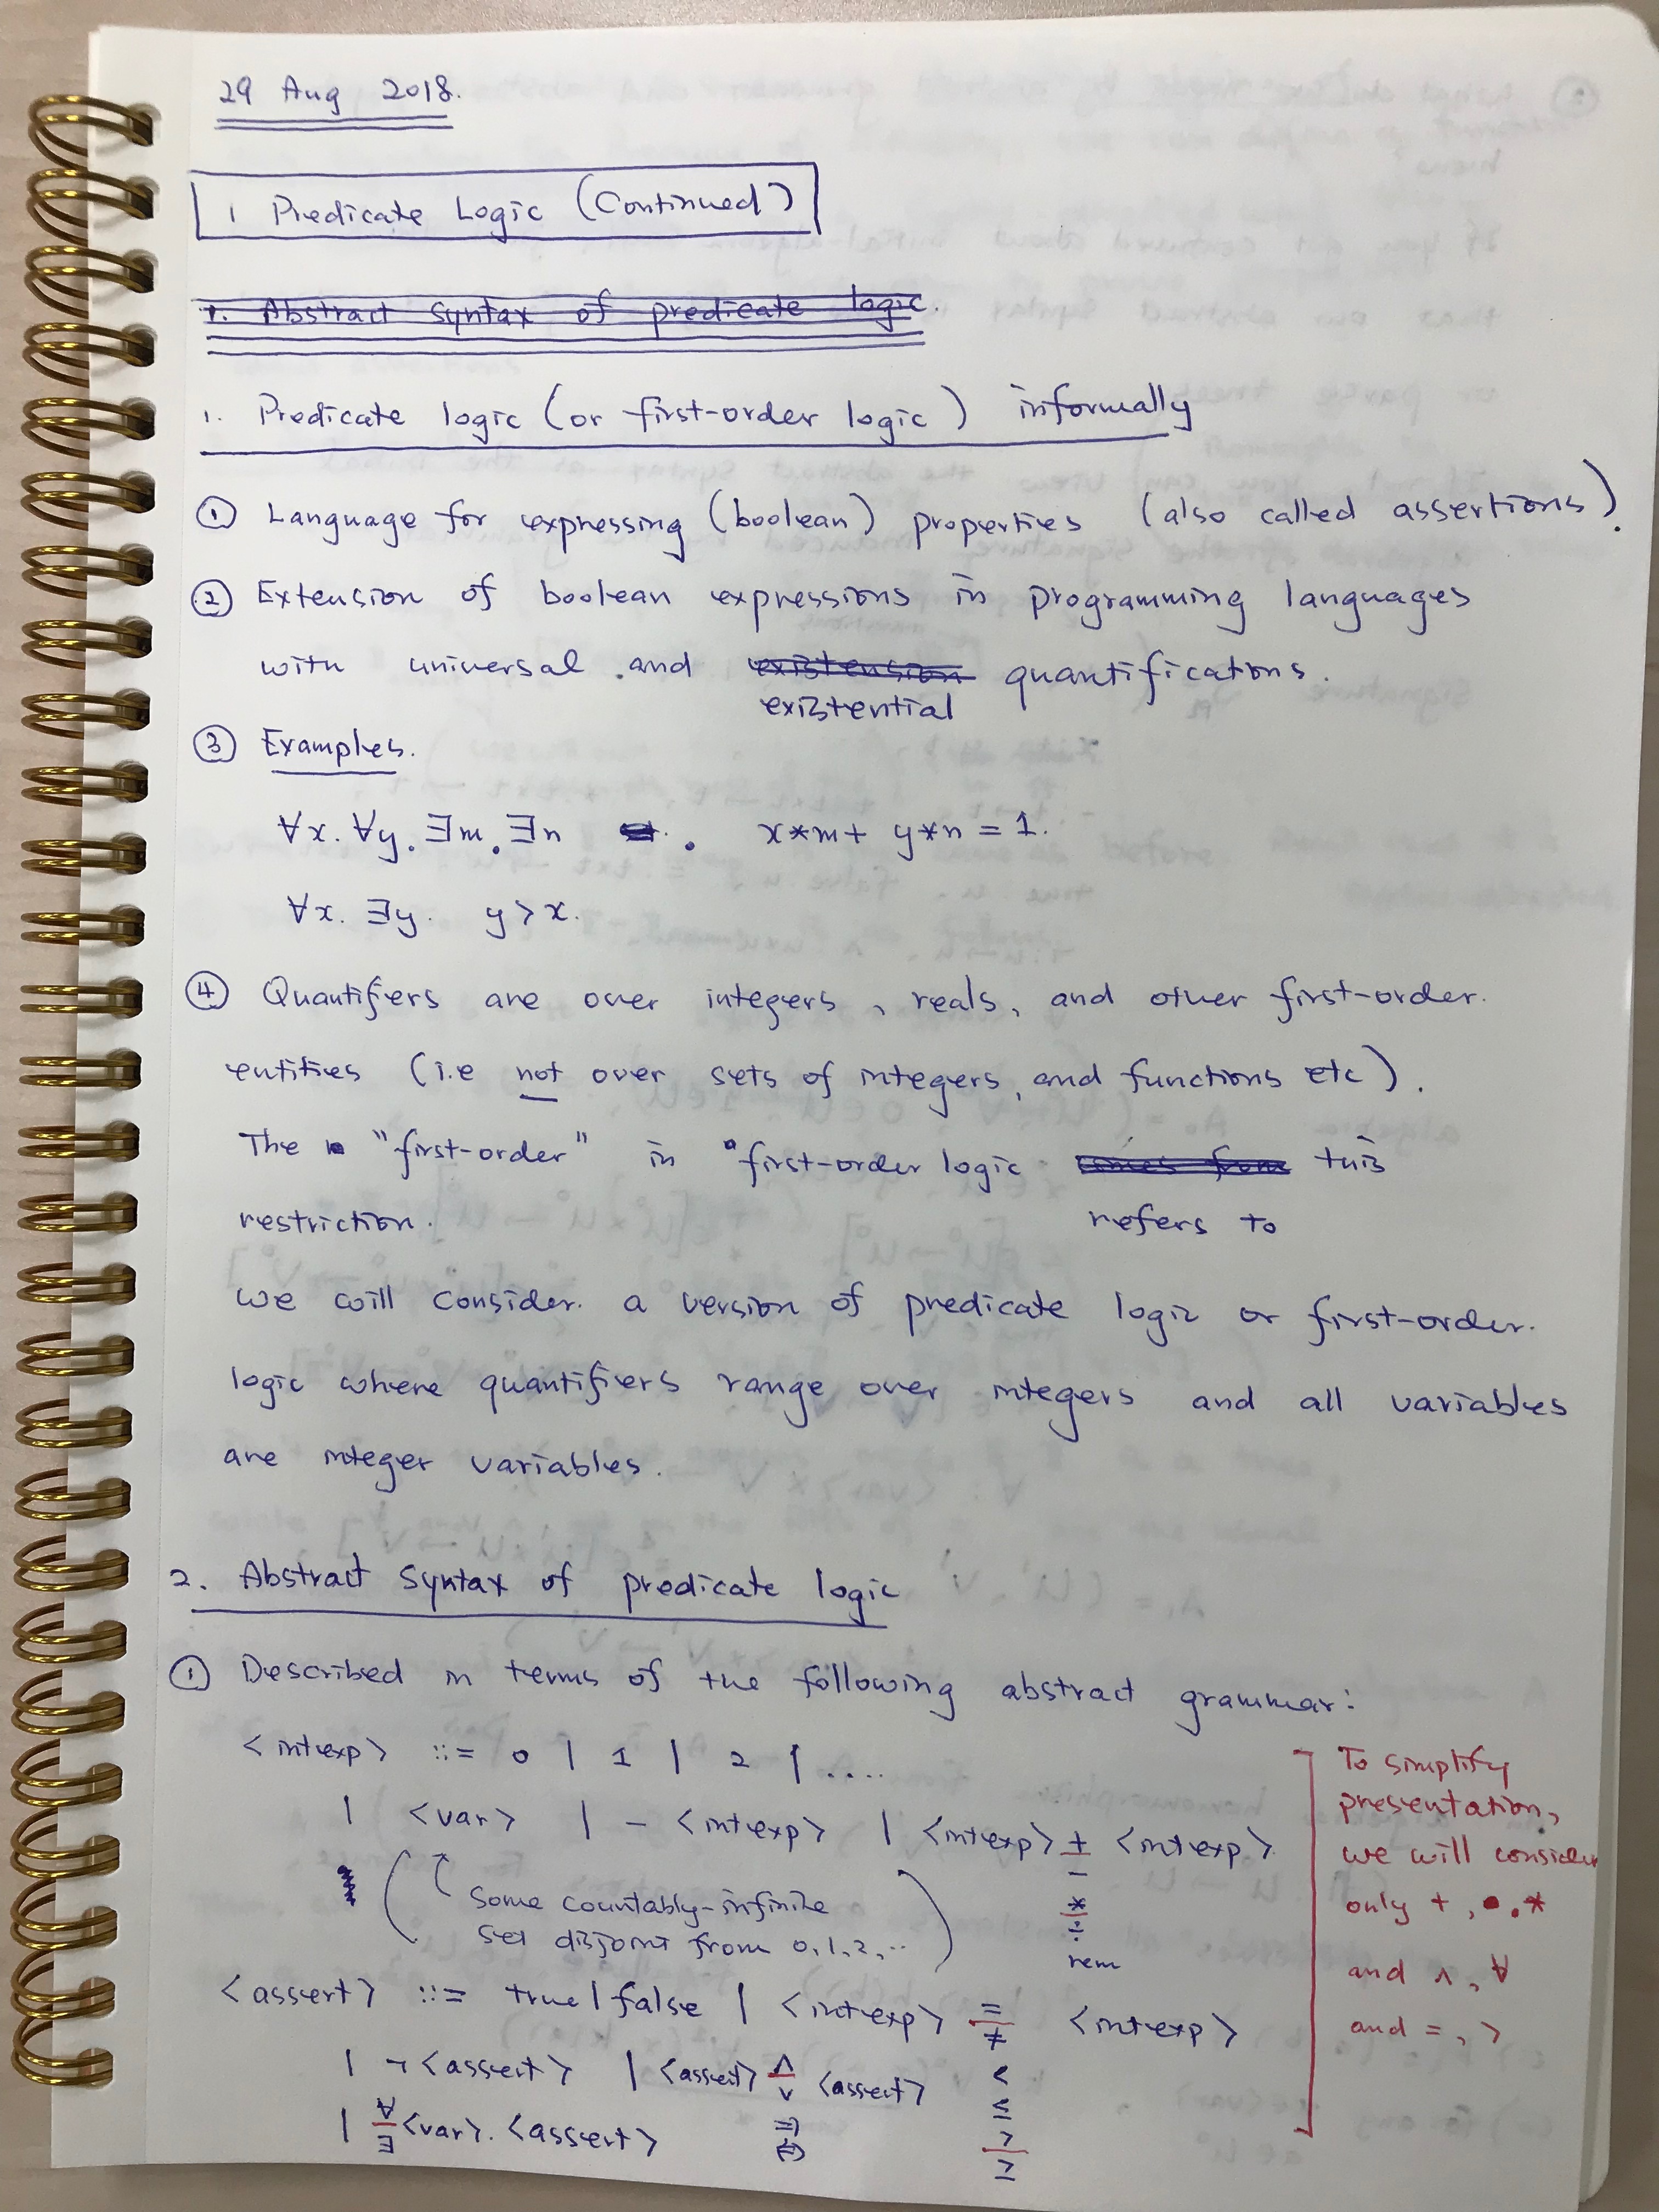 29 Aug 2018.
1 Predicate Logic (Continued)
1. Abstract Syntax of predicate logic.
1. Predicate logic (or first-order logic) informally
① Language for expressing (boolean) properties (also called assertions).
② Extension of boolean expressions in programming languages
with universal and existension quantifications.
existential
③ Examples.
∀x. ∀y. ∃m. ∃n . x*m + y*n = 1.
∀x. ∃y. y > x.
④ Quantifiers are over integers, reals, and other first-order.
entities (i.e not over sets of integers, and functions etc).
The "first-order" in "first-order logic comes from this
restriction. refers to
we will consider. a version of predicate logic or first-order.
logic where quantifiers range over integers and all variables
are integer variables.
2. Abstract Syntax of predicate logic
① Described in terms of the following abstract grammar:
<intexp> ::= 0 | 1 | 2 | ....
| <var> | - <intexp> | <intexp> + <intexp>
-
*
÷
rem
( Some countably-infinite
set disjoint from 0, 1, 2, .. )
<assert> ::= true | false | <intexp> = <intexp>
≠
<
≤
>
≥
| ¬ <assert> | <assert> ∧ <assert>
∨
⇒
⇔
| ∀ <var>. <assert>
∃
To simplify
presentation,
we will consider
only +, *
and ∧, ∀
and =, >